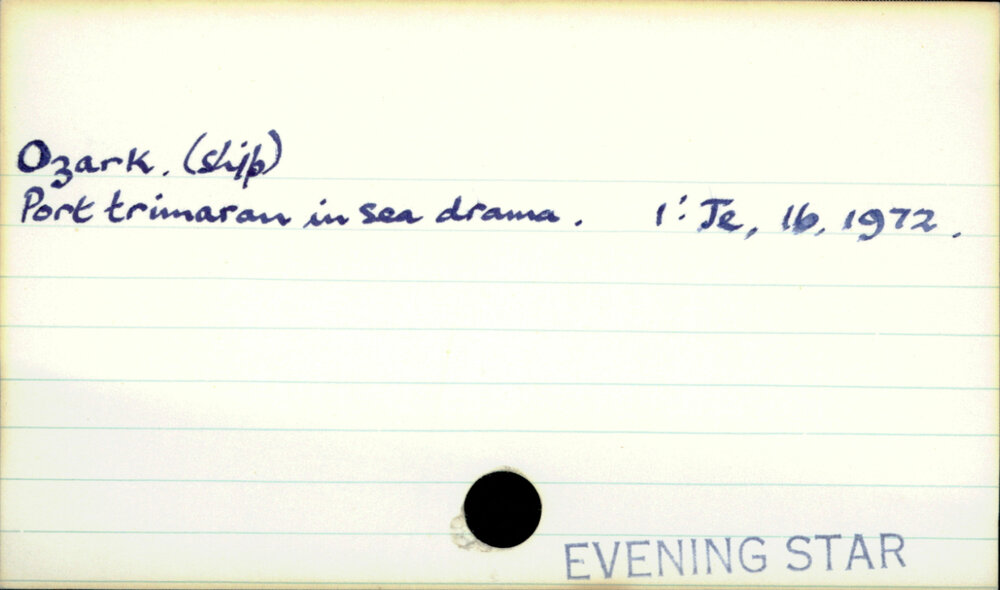 Ozark. (ship)
Port trimaran in sea drama. 1: Je, 16, 1972.
EVENING STAR